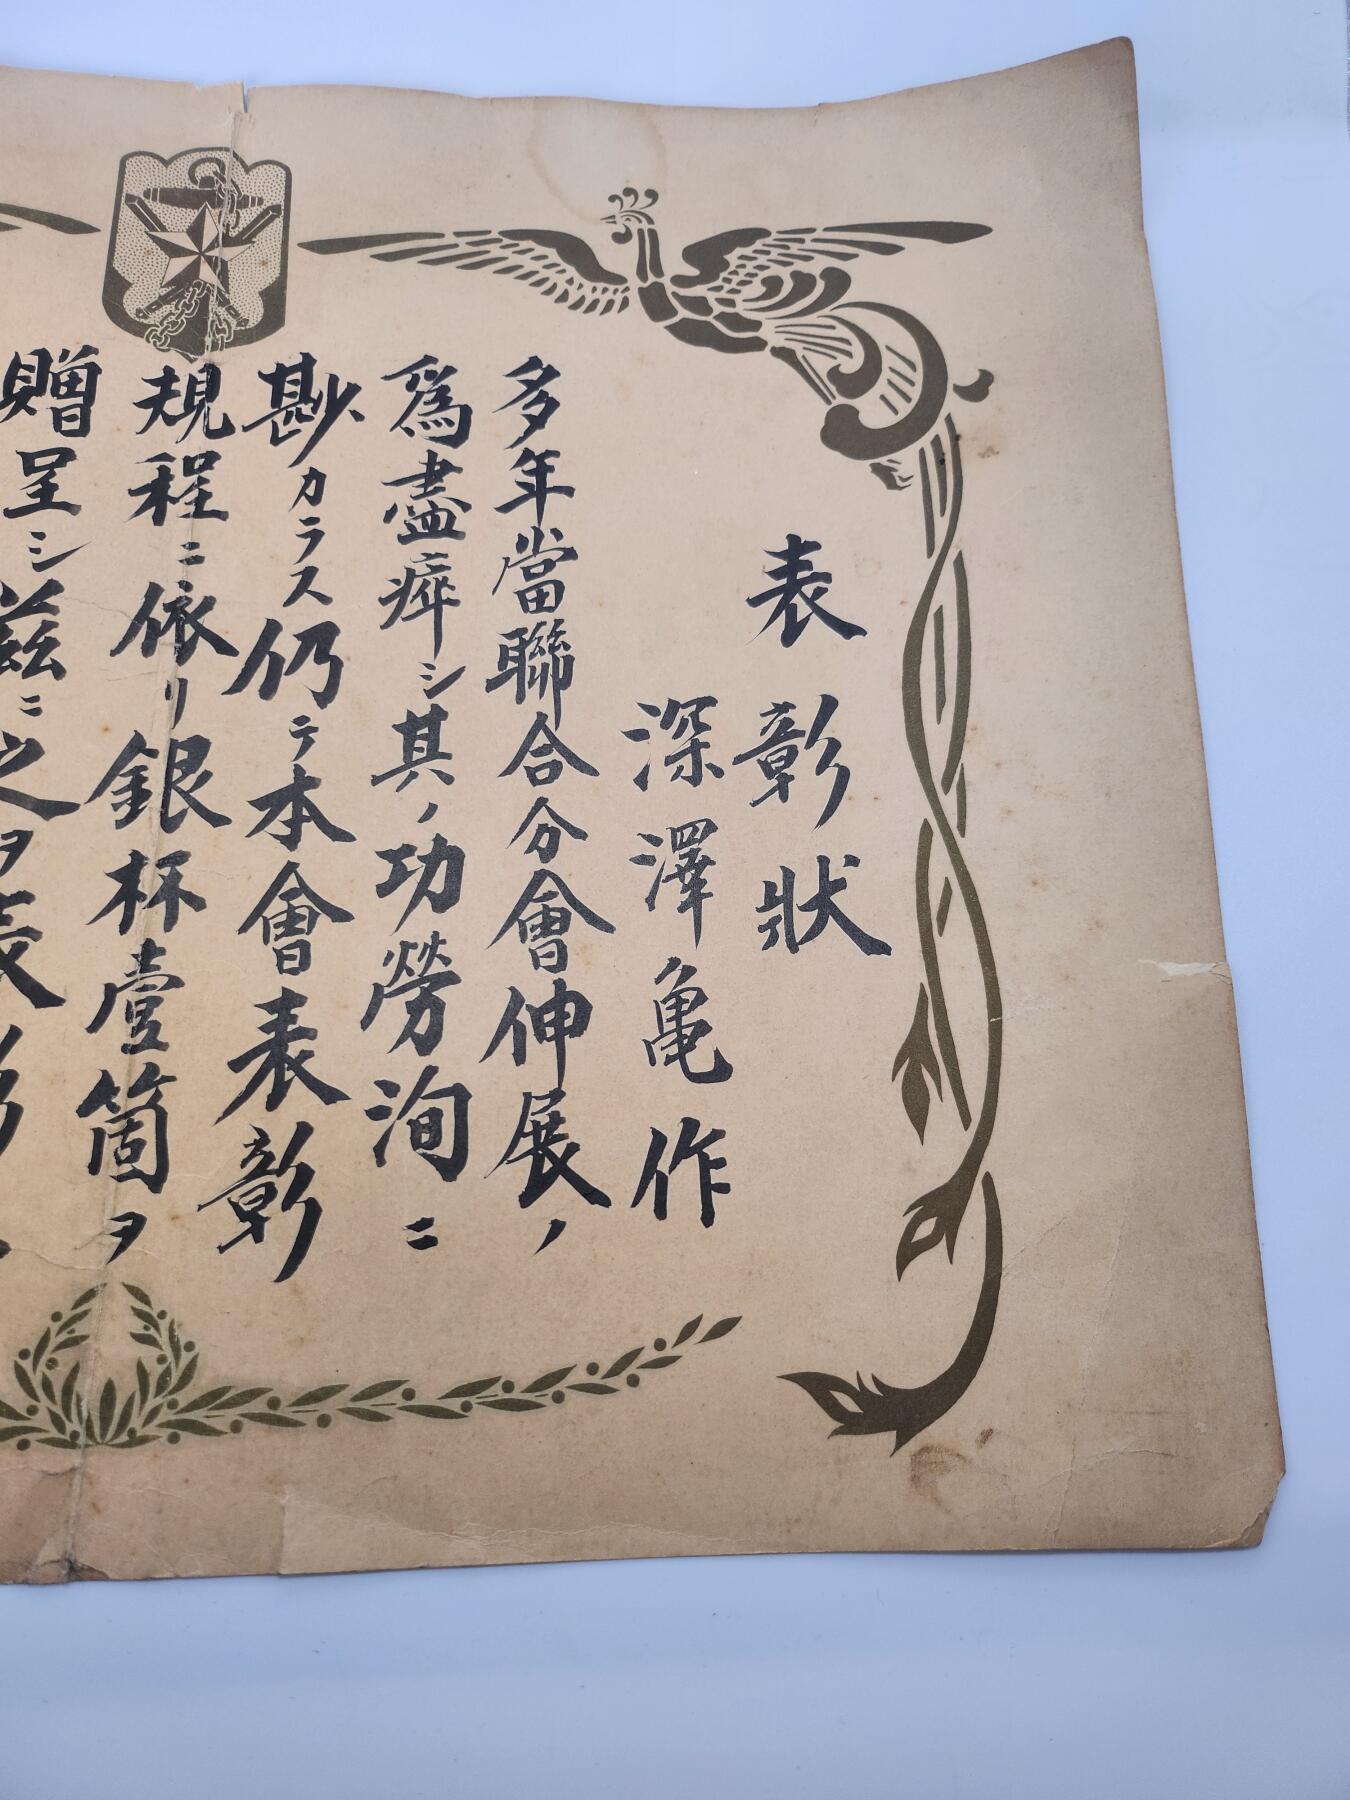 表彰狀
深澤亀作
多年當聯合分會伸展ノ
為盡瘁シ其ノ功勞洵ニ
尠カラス仍テ本會表彰
規程ニ依リ銀杯壹箇ヲ
贈呈シ茲ニ之ヲ表彰